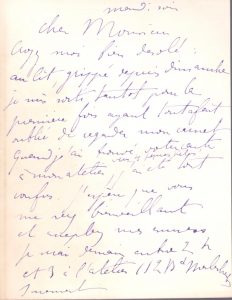 mardi soir
Cher Monsieur
Croyez moi bien désolé :
au lit grippé depuis dimanche
je suis sorti tantôt pour la
première fois ayant tout à fait
oublié de regarder mon carnet
quand j'ai trouvé votre carte
à mon atelier j'ai été tout
confus. J'espère que vous
me bienveillant
et mes excuses
je demain entre 2 h
et 3 à l'atelier 112 Bd Malesherbes